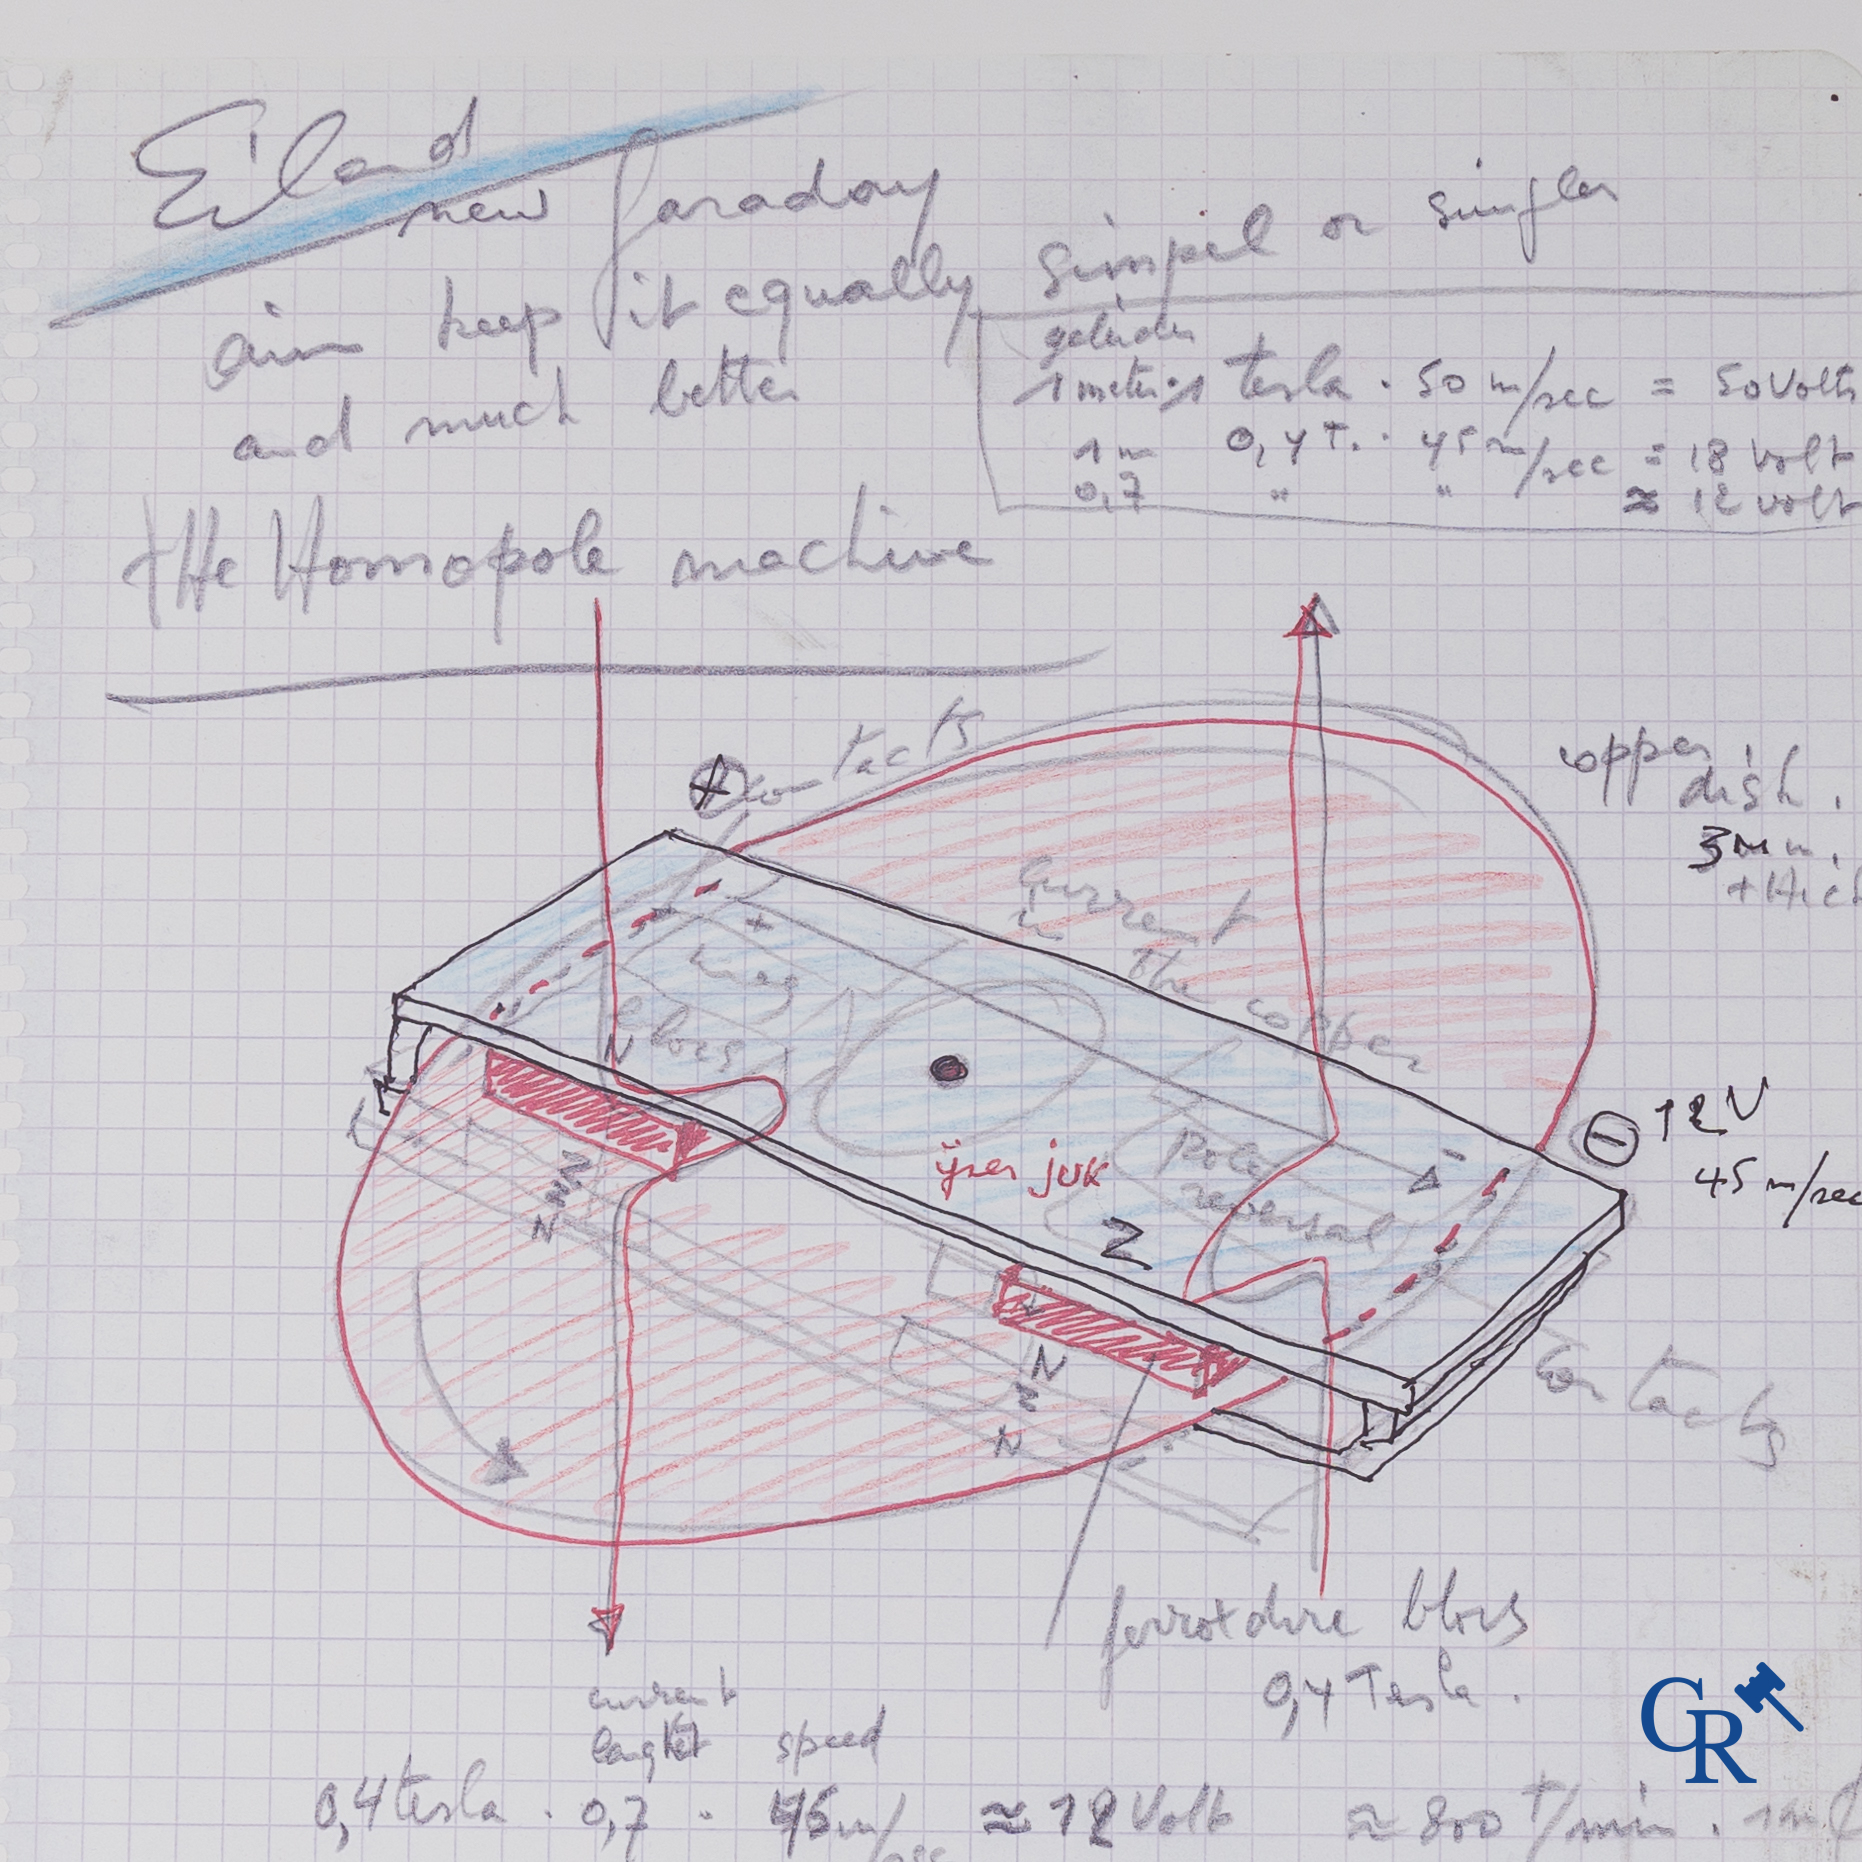 Eiland
new faraday
aim keep it equally simpel or simpler
and much better
geleider
1 meter · 1 tesla · 50 m/sec = 50 Volts
1 m 0,4 T. · 45 m/sec = 18 Volt
0,7 " " ≈ 12 volt
tHe Homopole machine
+ contacts
copper
dish.
3 mm.
tHick
current
in
the copper
+
mag
blocs
N
- 12 V
45 m/sec
ijzer juk
Pole
reversal
-
Z
N
N
N
Z
N
N
contacts
ferroxdure blocs
0,4 Tesla.
current
lenght speed
0,4 tesla · 0,7 · 45 m/sec ≈ 12 Volt ≈ 800 t/min. 1m
CR